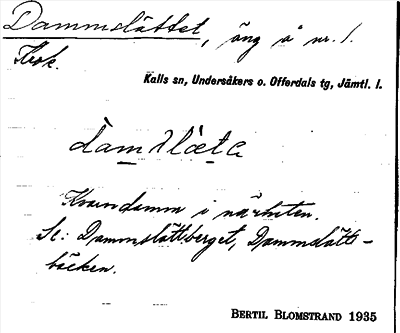 Dammslåttet, äng å nr. 1.
Kalls sn, Undersåkers o. Offerdals tg, Jämtl. l.
Kvarndamm i närheten.
Se: Dammslåttberget, Dammslått-
bäcken.
BERTIL BLOMSTRAND 1935